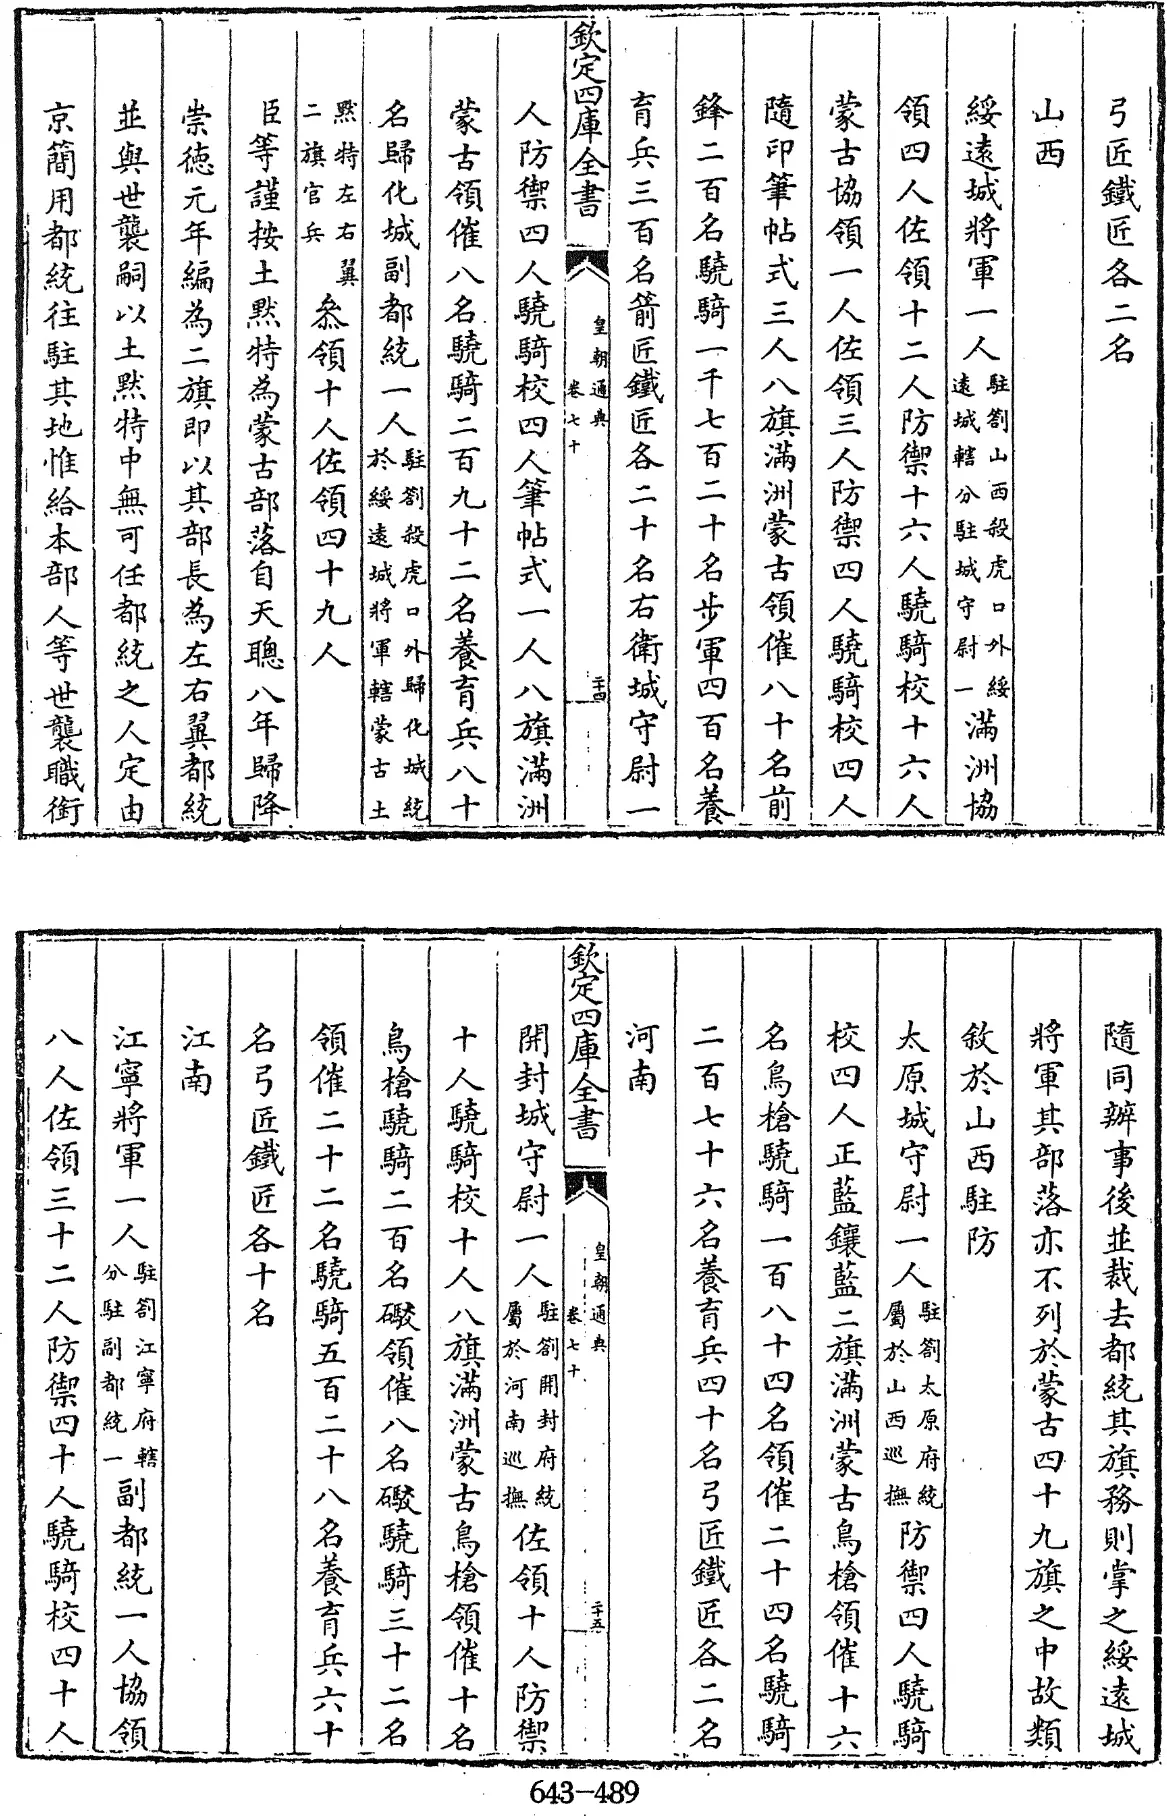 弓匠鐵匠各二名
山西
綏遠城將軍一人駐劄山西殺虎口外綏遠城轄分駐城守尉一滿洲協
領四人佐領十二人防禦十六人驍騎校十六人
蒙古協領一人佐領三人防禦四人驍騎校四人
隨印筆帖式三人八旗滿洲蒙古領催八十名前
鋒二百名驍騎一千七百二十名步軍四百名養
育兵三百名箭匠鐵匠各二十名右衛城守尉一
欽定四庫全書
皇朝通典
卷七十
二十四
人防禦四人驍騎校四人筆帖式一人八旗滿洲
蒙古領催八名驍騎二百九十二名養育兵八十
名歸化城副都統一人駐劄殺虎口外歸化城統於綏遠城將軍轄蒙古土
默特左右翼二旗官兵叅領十人佐領四十九人
臣等謹按土默特為蒙古部落自天聰八年歸降
崇德元年編為二旗即以其部長為左右翼都統
並與世襲嗣以土默特中無可任都統之人定由
京簡用都統往駐其地惟給本部人等世襲職銜
隨同辦事後並裁去都統其旗務則掌之綏遠城
將軍其部落亦不列於蒙古四十九旗之中故類
敘於山西駐防
太原城守尉一人駐劄太原府統屬於山西巡撫防禦四人驍騎
校四人正藍鑲藍二旗滿洲蒙古鳥槍領催十六
名鳥槍驍騎一百八十四名領催二十四名驍騎
二百七十六名養育兵四十名弓匠鐵匠各二名
河南
欽定四庫全書
皇朝通典
卷七十
二十五
開封城守尉一人駐劄開封府統屬於河南巡撫佐領十人防禦
十人驍騎校十人八旗滿洲蒙古鳥槍領催十名
鳥槍驍騎二百名礮領催八名礮驍騎三十二名
領催二十二名驍騎五百二十八名養育兵六十
名弓匠鐵匠各十名
江南
江寧將軍一人駐劄江寧府轄分駐副都統一副都統一人協領
八人佐領三十二人防禦四十人驍騎校四十人
643-489